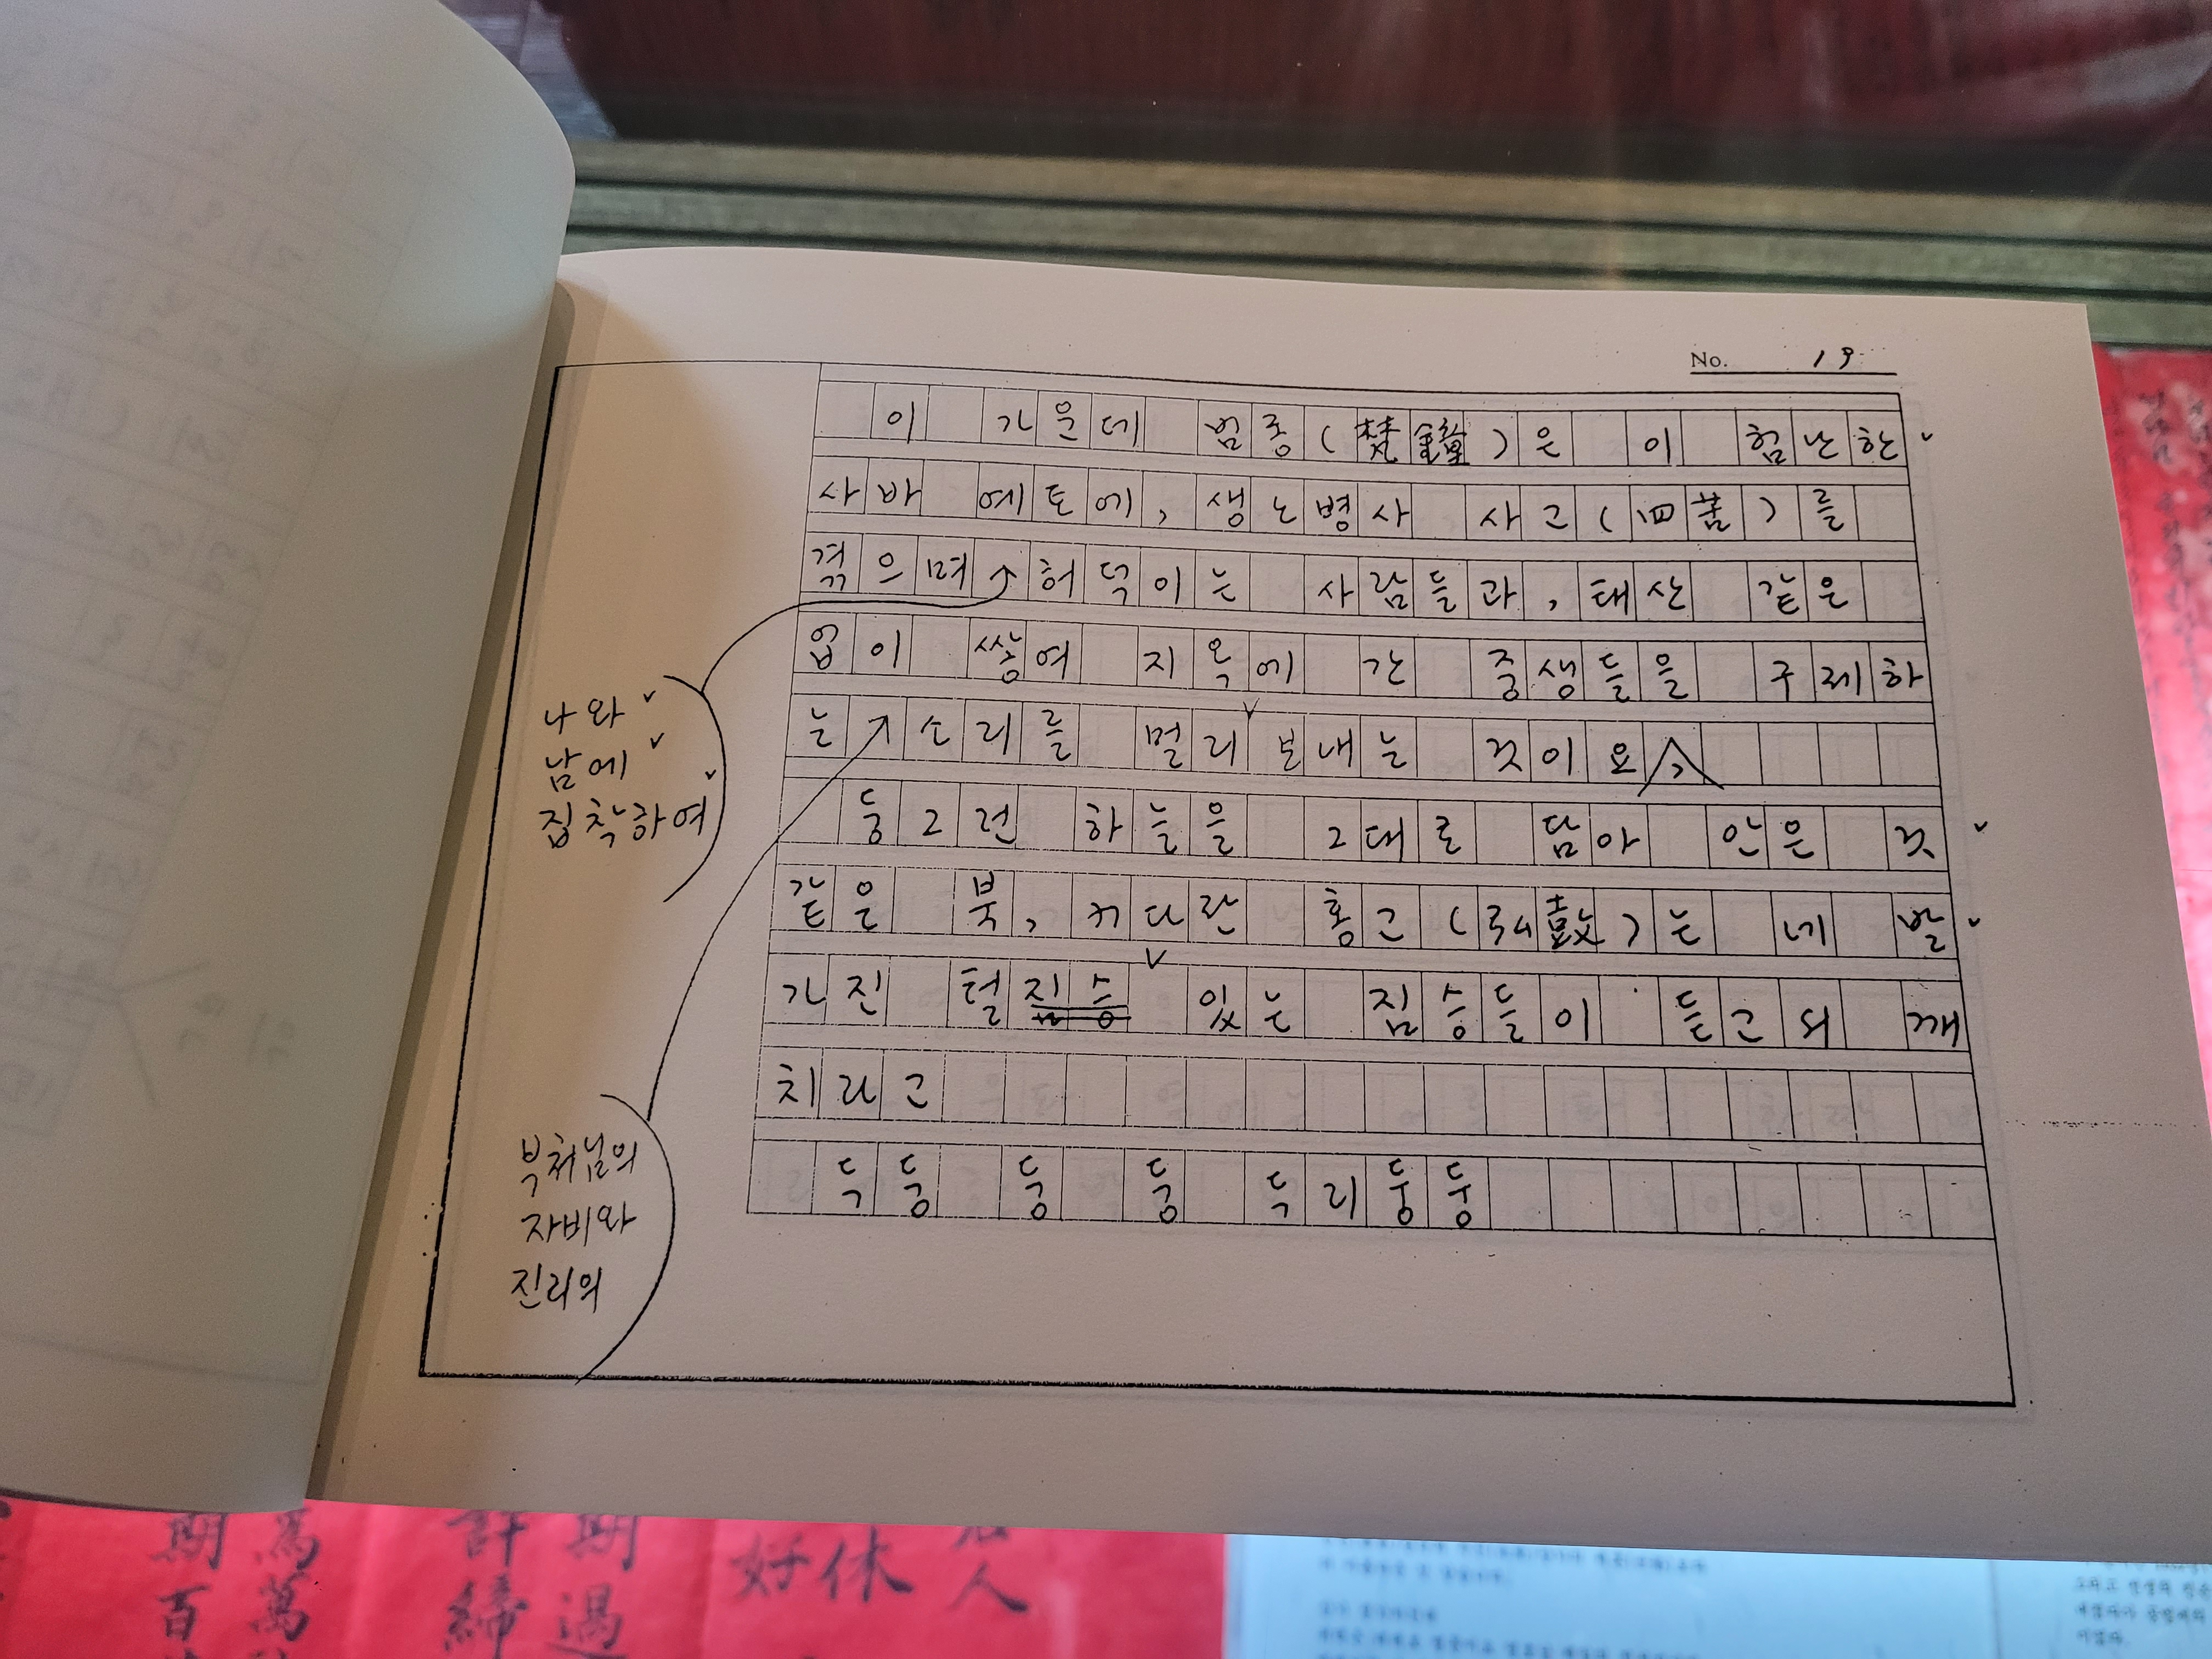 No. 19
이 가운데 범종(梵鐘)은 이 험난한
사바 예토에, 생노병사 사고(四苦)를
겪으며 허덕이는 사람들과, 태산 같은
업이 쌓여 지옥에 간 중생들을 구제하
는 소리를 멀리 보내는 것이요,
둥그런 하늘을 그대로 담아 안은 것
같은 북, 커다란 홍고(弘鼓)는 네 발
가진 털짐승 있는 짐승들이 듣고 되 깨
치라고
둑둥 둥 둥 둑리둥둥
나와
남에
집착하여
부처님의
자비와
진리의
期 萬 計 期 好 休 人
百 萬 締 過